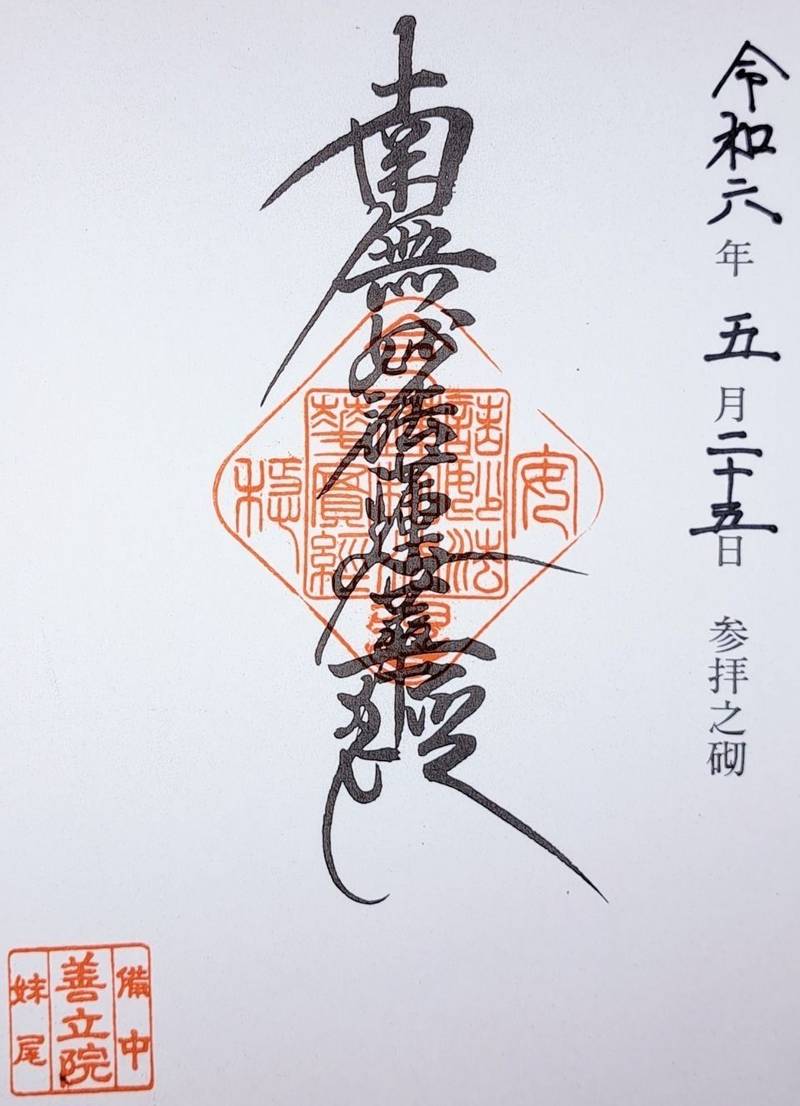 令和六年 五月二十五日 参拝之砌
南無妙法蓮華経
安
穏
備中
善立院
妹尾